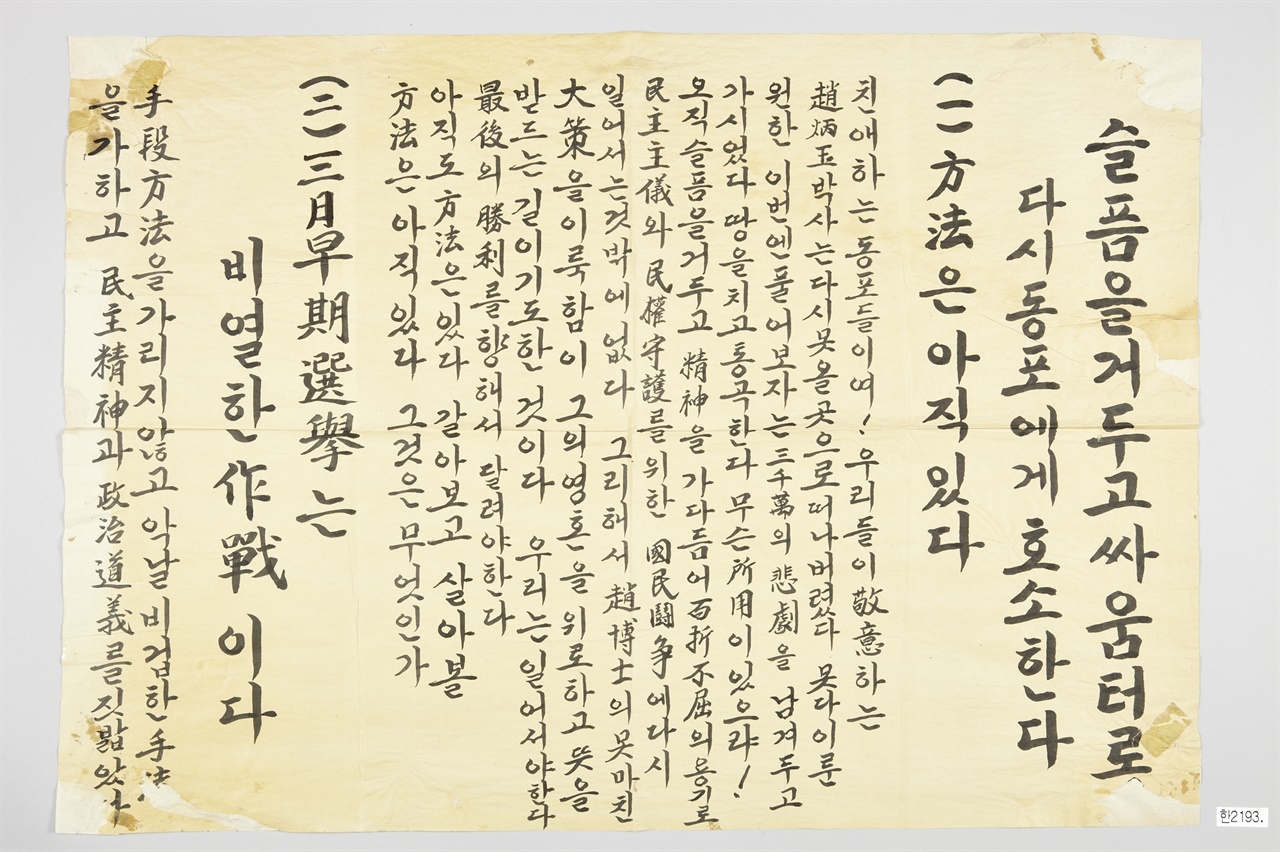 슬픔을거두고싸움터로
다시동포에게호소한다
(一)方法은아직있다
친애하는동포들이여! 우리들이敬意하는
趙炳玉박사는다시못올곳으로떠나버렸다 못다이룬
원한 이번엔풀어보자는三千萬의悲劇을 남겨두고
가시었다 땅을치고통곡한다 무슨所用이있으랴!
오직슬픔을거두고 精神을 가다듬어百折不屈의용기로
民主主儀와 民權守護를위한 國民鬪争에다시
일어서는것밖에없다 그리해서 趙博士의못마친
大策을이룩함이 그의영혼을위로하고뜻을
받드는길이기도한것이다 우리는일어서야한다
最後의勝利를향해서 달려야한다
아직도方法은있다 갈아보고 살아볼
方法은아직있다 그것은무엇인가
(二)三月早期選擧는
비열한作戰이다
手段方法을가리지않고악날비겁한手法
을가하고 民主精神과政治道義를짓밟았다
한2193.